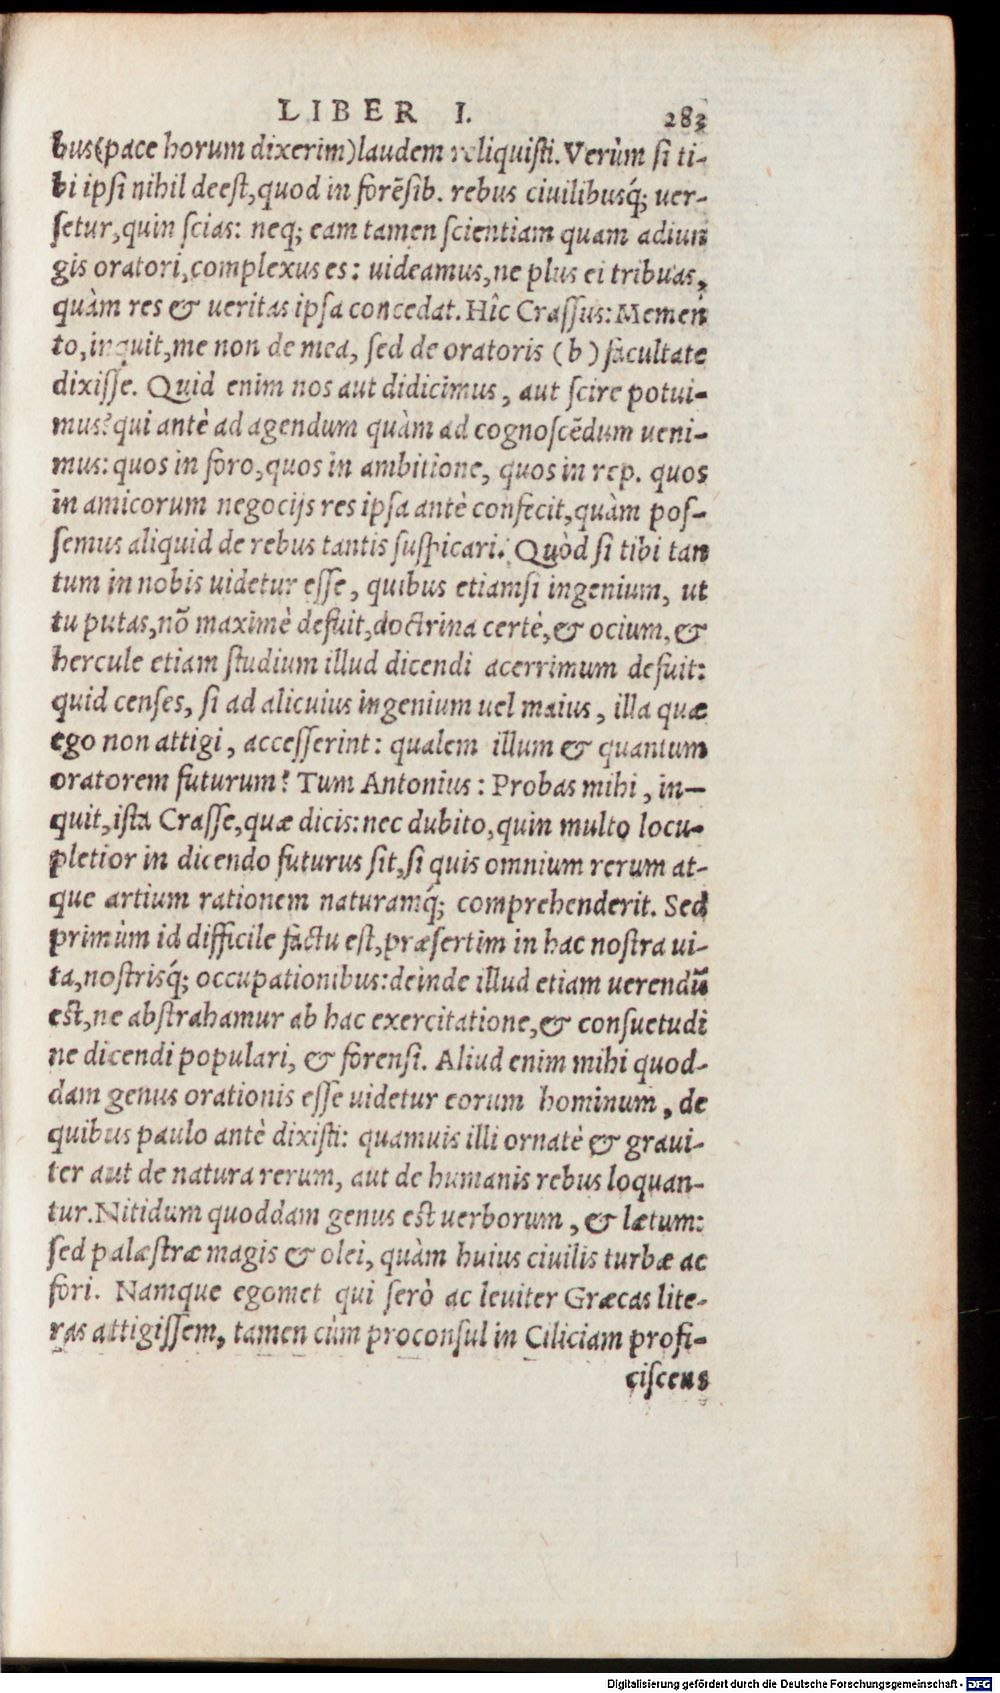 LIBER I. 283
bus(pace horum dixerim)laudem reliquisti. Verùm si ti-
bi ipsi nihil deest,quod in forẽsib. rebus ciuilibusq́; uer-
setur,quin scias: neq; eam tamen scientiam quam adiun
gis oratori,complexus es: uideamus,ne plus ei tribuas,
quàm res & ueritas ipsa concedat. Hîc Crassus: Memen
to,inquit,me non de mea, sed de oratoris (b) facultate
dixisse. Quid enim nos aut didicimus, aut scire potui-
mus? qui antè ad agendum quàm ad cognoscẽdum ueni-
mus: quos in foro,quos in ambitione, quos in rep. quos
in amicorum negocijs res ipsa antè confecit,quàm pos-
semus aliquid de rebus tantis suspicari. Quòd si tibi tan
tum in nobis uidetur esse, quibus etiamsi ingenium, ut
tu putas,nõ maximè defuit,doctrina certè,& ocium, &
hercule etiam studium illud dicendi acerrimum defuit:
quid censes, si ad alicuius ingenium uel maius, illa quæ
ego non attigi, accesserint: qualem illum & quantum
oratorem futurum? Tum Antonius: Probas mihi, in-
quit,ista Crasse,quæ dicis: nec dubito,quin multo locu-
pletior in dicendo futurus sit,si quis omnium rerum at-
que artium rationem naturamq́; comprehenderit. Sed
primùm id difficile factu est,præsertim in hac nostra ui-
ta,nostrisq́; occupationibus: deinde illud etiam uerendũ
est,ne abstrahamur ab hac exercitatione,& consuetudi
ne dicendi populari, & forensi. Aliud enim mihi quod-
dam genus orationis esse uidetur eorum hominum, de
quibus paulo antè dixisti: quamuis illi ornatè & graui-
ter aut de natura rerum, aut de humanis rebus loquan-
tur. Nitidum quoddam genus est uerborum, & lætum:
sed palæstræ magis & olei, quàm huius ciuilis turbæ ac
fori. Namque egomet qui serò ac leuiter Græcas lite-
ras attigissem, tamen cùm proconsul in Ciliciam profi-
ciscens
Digitalisierung gefördert durch die Deutsche Forschungsgemeinschaft - DFG